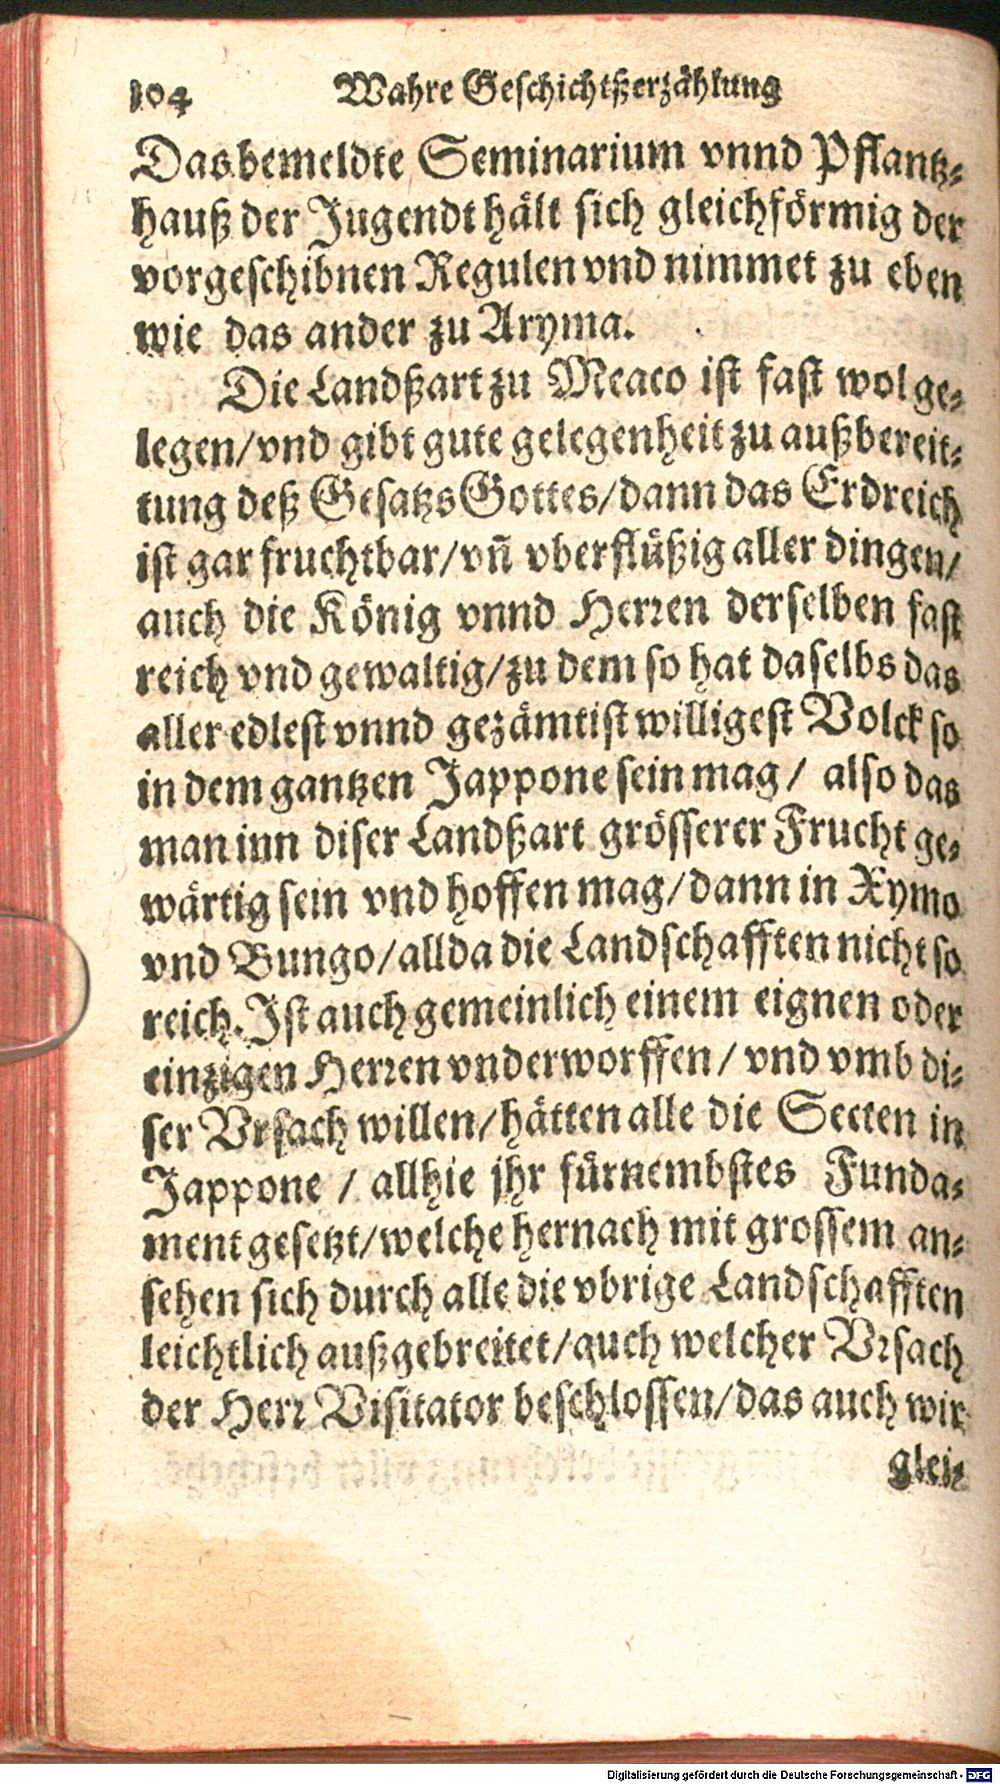 104 Wahre Geschichtßerzählung
Das bemeldte Seminarium vnnd Pflantz-
hauß der Jugendt hält sich gleichförmig der
vorgeschibnen Regulen vnd nimmet zu eben
wie das ander zu Aryma.
Die Landßart zu Meaco ist fast wol ge-
legen/vnd gibt gute gelegenheit zu außbereit-
tung deß Gesatzs Gottes/dann das Erdreich
ist gar fruchtbar/vñ vberflüßig aller dingen/
auch die König vnnd Herren derselben fast
reich vnd gewaltig/zu dem so hat daselbs das
aller edlest vnnd gezämtist willigest Volck so
in dem gantzen Jappone sein mag/ also das
man inn diser Landßart grösserer Frucht ge-
wärtig sein vnd hoffen mag/dann in Xymo
vnd Bungo/allda die Landschafften nicht so
reich. Ist auch gemeinlich einem eignen oder
einzigen Herren vnderworffen/ vnd vmb di-
ser Vrsach willen/hätten alle die Secten in
Jappone / allhie jhr fürnembstes Funda-
ment gesetzt/welche hernach mit grossem an-
sehen sich durch alle die vbrige Landschafften
leichtlich außgebreitet/auch welcher Vrsach
der Herr Visitator beschlossen/das auch wir
glei-
Digitalisierung gefördert durch die Deutsche Forschungsgemeinschaft - DFG